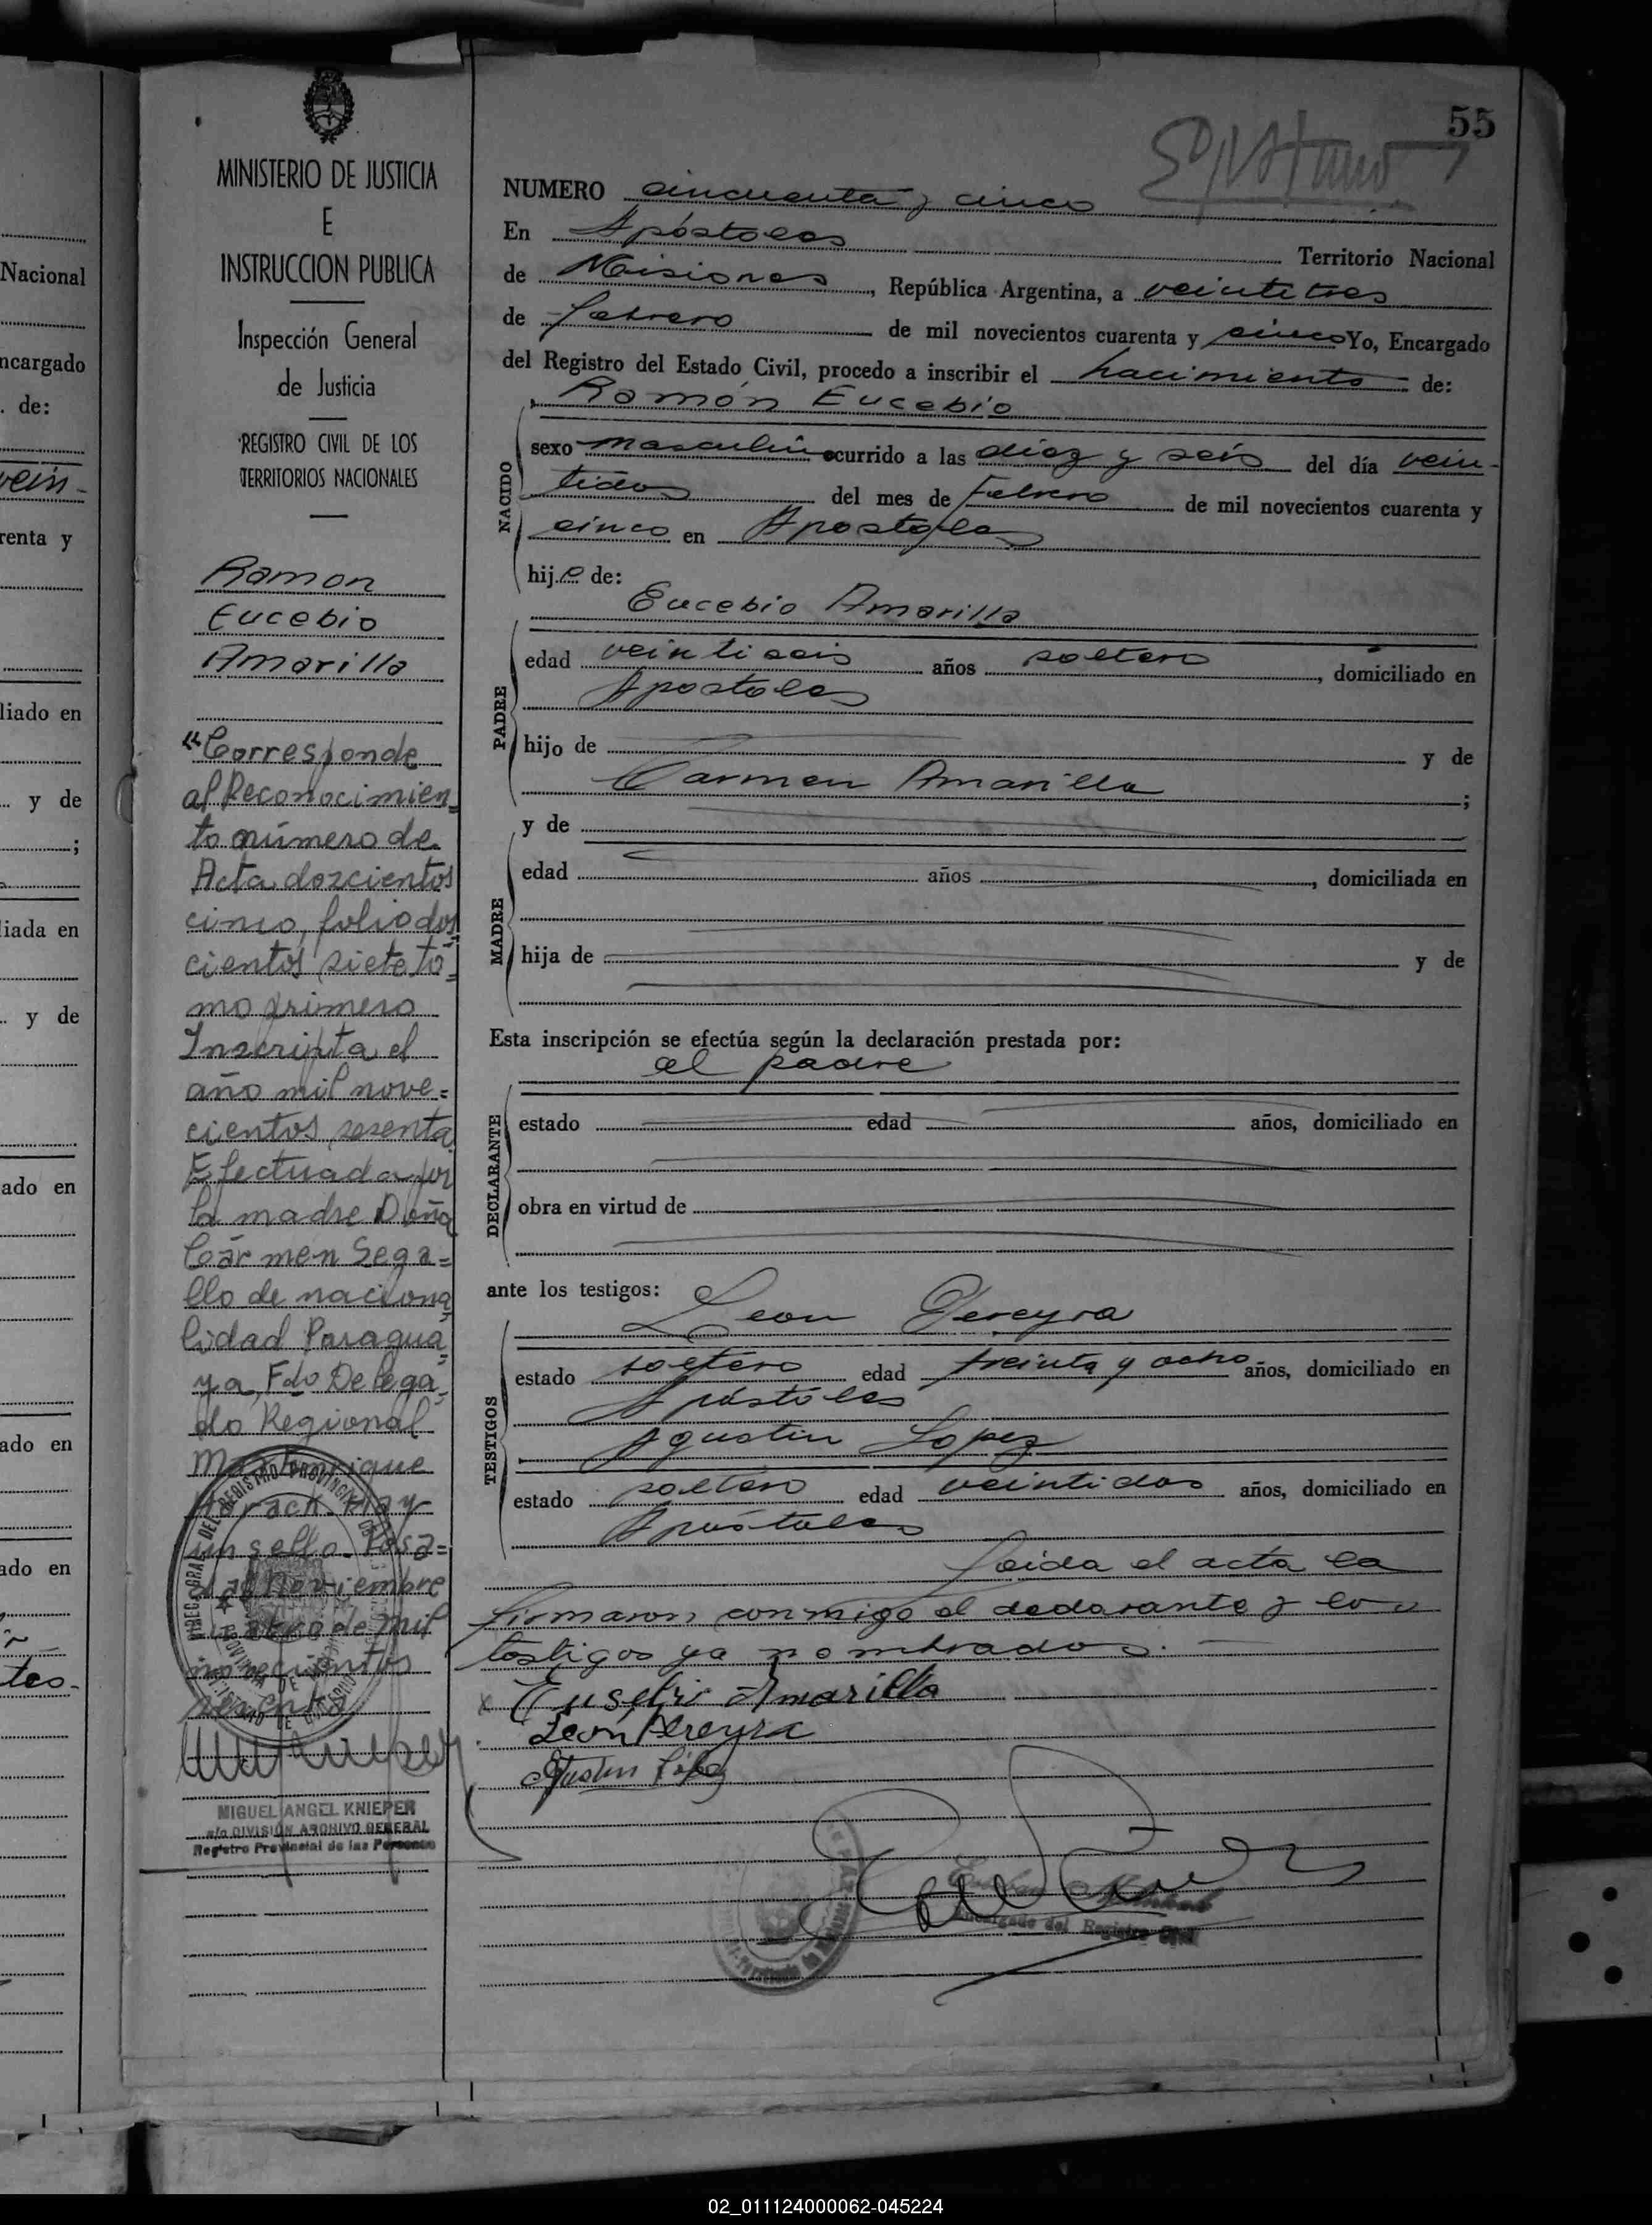 Nacional
ncargado
. de:
vein-
renta y
liado en
.. y de
;
liada en
. y de
ado en
ado en
ado en
tes.
MINISTERIO DE JUSTICIA
E
INSTRUCCION PUBLICA
Inspección General
de Justicia
REGISTRO CIVIL DE LOS
TERRITORIOS NACIONALES
Ramon
Eucebio
Amarilla
"Corresponde
al Reconocimien=
to número de
Acta doscientos
cinco, folio dos=
cientos siete to=
mo primero
Inscripta el
año mil nove=
cientos sesenta
Efectuada por
la madre Doña
Cármen Sega=
llo de naciona=
lidad Paragua=
ya, Fdo Delega=
do Regional
Enrique
Hay
un sello. Posa=
das Noviembre
de mil
novecientos
sesenta
MIGUEL ANGEL KNIEPER
a/c DIVISIÓN ARCHIVO GENERAL
Registro Provincial de las Personas
55
NUMERO cincuenta y cinco
En Apóstoles Territorio Nacional
de Misiones, República Argentina, a veintitres
de febrero de mil novecientos cuarenta y cinco Yo, Encargado
del Registro del Estado Civil, procedo a inscribir el nacimiento de:
Ramón Eucebio
NACIDO
sexo masculino ocurrido a las diez y seis del día vein-
tidos del mes de Febrero de mil novecientos cuarenta y
cinco en Apostoles
hijo de:
Eucebio Amarilla
PADRE
edad veintiseis años soltero, domiciliado en
Apostoles
hijo de y de
Carmen Amarilla ;
y de
MADRE
edad años , domiciliada en
hija de y de
Esta inscripción se efectúa según la declaración prestada por:
el padre
DECLARANTE
estado edad años, domiciliado en
obra en virtud de
ante los testigos:
Leon Pereyra
TESTIGOS
estado soltero edad treinta y ocho años, domiciliado en
Apóstoles
Agustin Lopez
estado soltero edad veintidos años, domiciliado en
Apóstoles
Leida el acta la
firmaron conmigo el declarante y los
testigos ya nombrados.
x Eusebio Amarilla
León Pereyra
Agustin López
Encargado del Registro Civil
02_011124000062-045224